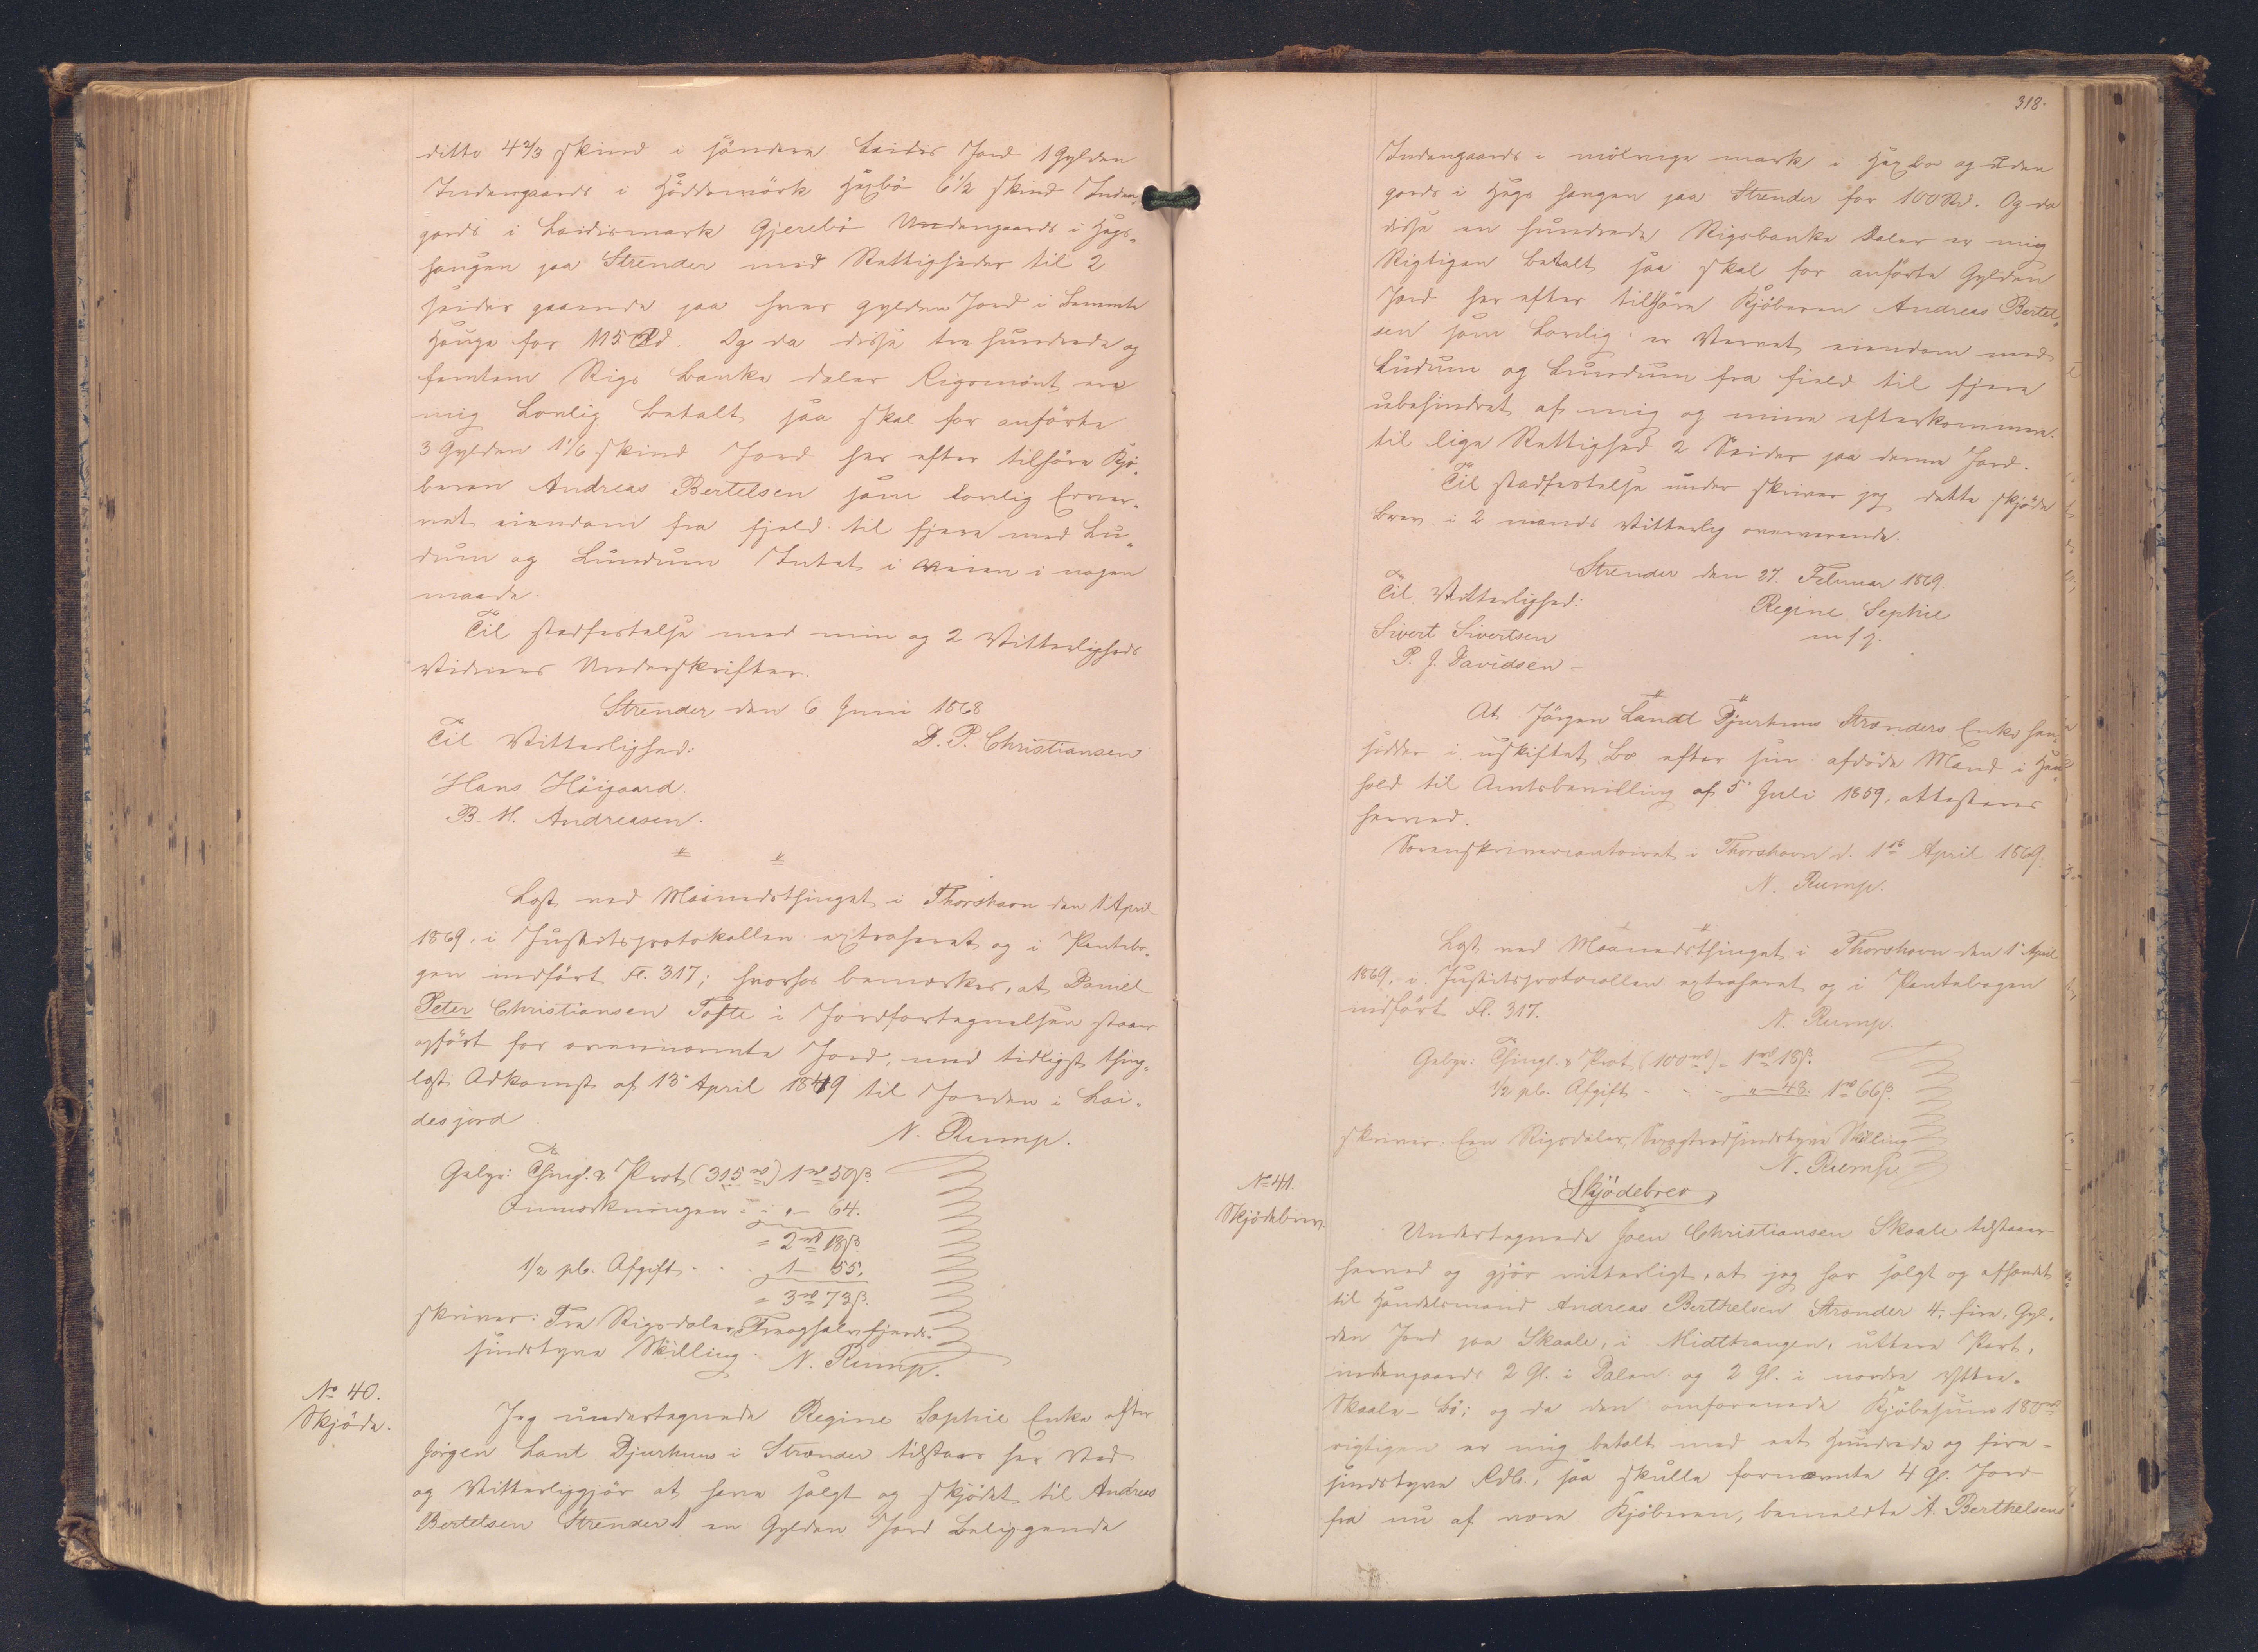 ditto 4 2/3 skind i söndere Leidis Jord 1 Gylden
Indengaards i Höddemörk Høybö 6 1/2 skind Inden
gards i Leidismark Gjerebö Undengaards i Høgs-
haugen paa Strender med Rettigheder til 2
heider gaaende paa hver gylden Jord i bemente
Hauge for 115 Rd. Og da disse tre hundrede og
femten Rigs banke daler Rigsmönt ere
mig Lovlig betalt saa skal for anförte
3 Gylden 1 1/6 skind Jord her efter tilhöre Kjö-
beren Andreas Bertelsen som Lovlig Erver-
vet eiendom fra fjeld til fjere med Lu-
dum og Lundum Intet i Veien i nogen
maade.
Til stadfestelse med min og 2 Vitterligheds
Vidners Underskrifter.
Strender den 6 Juni 1868
Til Vitterlighed: D. P. Christiansen
Hans Höigaard.
B. M. Andreasen.
Læst ved Maanedsthinget i Thorshavn den 1 April
1869, i Justitsprotokollen extraheret og i Pantebo-
gen indfört Fl. 317; hvorhos bemærkes, at Daniel
Peter Christiansen Tofte i Jordfortegnelsen staar
opfört for ovennævnte Jord, med tidligst thing-
læst Adkomst af 13 April 1849 til Jorden i Lei-
desjord.
N. Rump.
Gebyr: Thingl. & Prot (315 rd) 1 rd 50 ß.
Anmærkningen - 64.
= 2 rd 18 ß
1/2 pC. Afgift . . . 1 - 55.
= 3 rd 73 ß.
skriver: Tre Rigsdaler, Treoghalvfjerds-
sindstyve Skilling. N. Rump.
No 40.
Skjöde.
Jeg undertegnede Regine Sophie Enke efter
Jörgen Lant Djurhuus i Strender tilstaar her Ved
og Vitterliggjör at have solgt og skjödet til Andreas
Bertelsen Strender 1 en Gylden Jord beliggende
318.
Indengaards i nölvige mark i Høybö og Uden
gards i Høgs haugen paa Strender for 100 Rd. Og da
disse en hundrede Rigsbanke Daler er mig
Rigtigen betalt saa skal for anförte Gylden
Jord her efter tilhöre Kjöberen Andreas Bertel-
sen som Lovlig er Vervet eiendom med
Ludum og Lundum fra field til fjere
ubehindret af mig og mine efterkommere
til lige Rettighed 2 Neider paa denne Jord.
Til stadfestelse under skriver jeg dette skjöde
brev i 2 mands Vitterlig overværende.
Strender den 27. Februar 1869.
Til Vitterlighed: Regine Sephie
Sivert Sivertsen m f p.
P. J. Davidsen -
At Jörgen Landt Djurhuus Stranders Enke hen-
sidder i uskiftet Bo efter sin afdöde Mand i Hen-
hold til Amtsbevilling af 5 Juli 1859, attesteres
herved.
Sorenskrivercontoiret i Thorshavn d. 1st April 1869.
N. Rump.
Læst ved Maanedsthinget i Thorshavn den 1 April
1869, i Justitsprotocollen extraheret og i Pantebogen
indfört Fl. 317.
N. Rump.
Gebyr: Thingl. & Prot (100 rd) = 1 rd 18 ß.
1/2 pC. Afgift - - - " - 48. 1 rd 66 ß.
skriver: Een Rigsdaler, Sexogtredsindstyve Skilling
N. Rump.
No 41.
Skjödebrev.
Skjödebrev
Undertegnede Joen Christiansen Skaale tilstaaer
herved og gjör vitterligt, at jeg har solgt og afhændet
til Handelsmand Andreas Berthelsen Strander 4, fire, Gyl-
den Jord paa Skaale, i Midthaugen, uttere Part,
indengaards 2 Gl. i Dalen og 2 Gl. i nordre Yttre-
Skaale-Bö; og da den omforenede Kjöbesum 180 rd
rigtigen er mig betalt med eet Hundrede og fire-
sindstyve Rdl., saa skulle fornævnte 4 Gl. Jord
fra nu af være Kjöberen, bemeldte A. Berthelsens